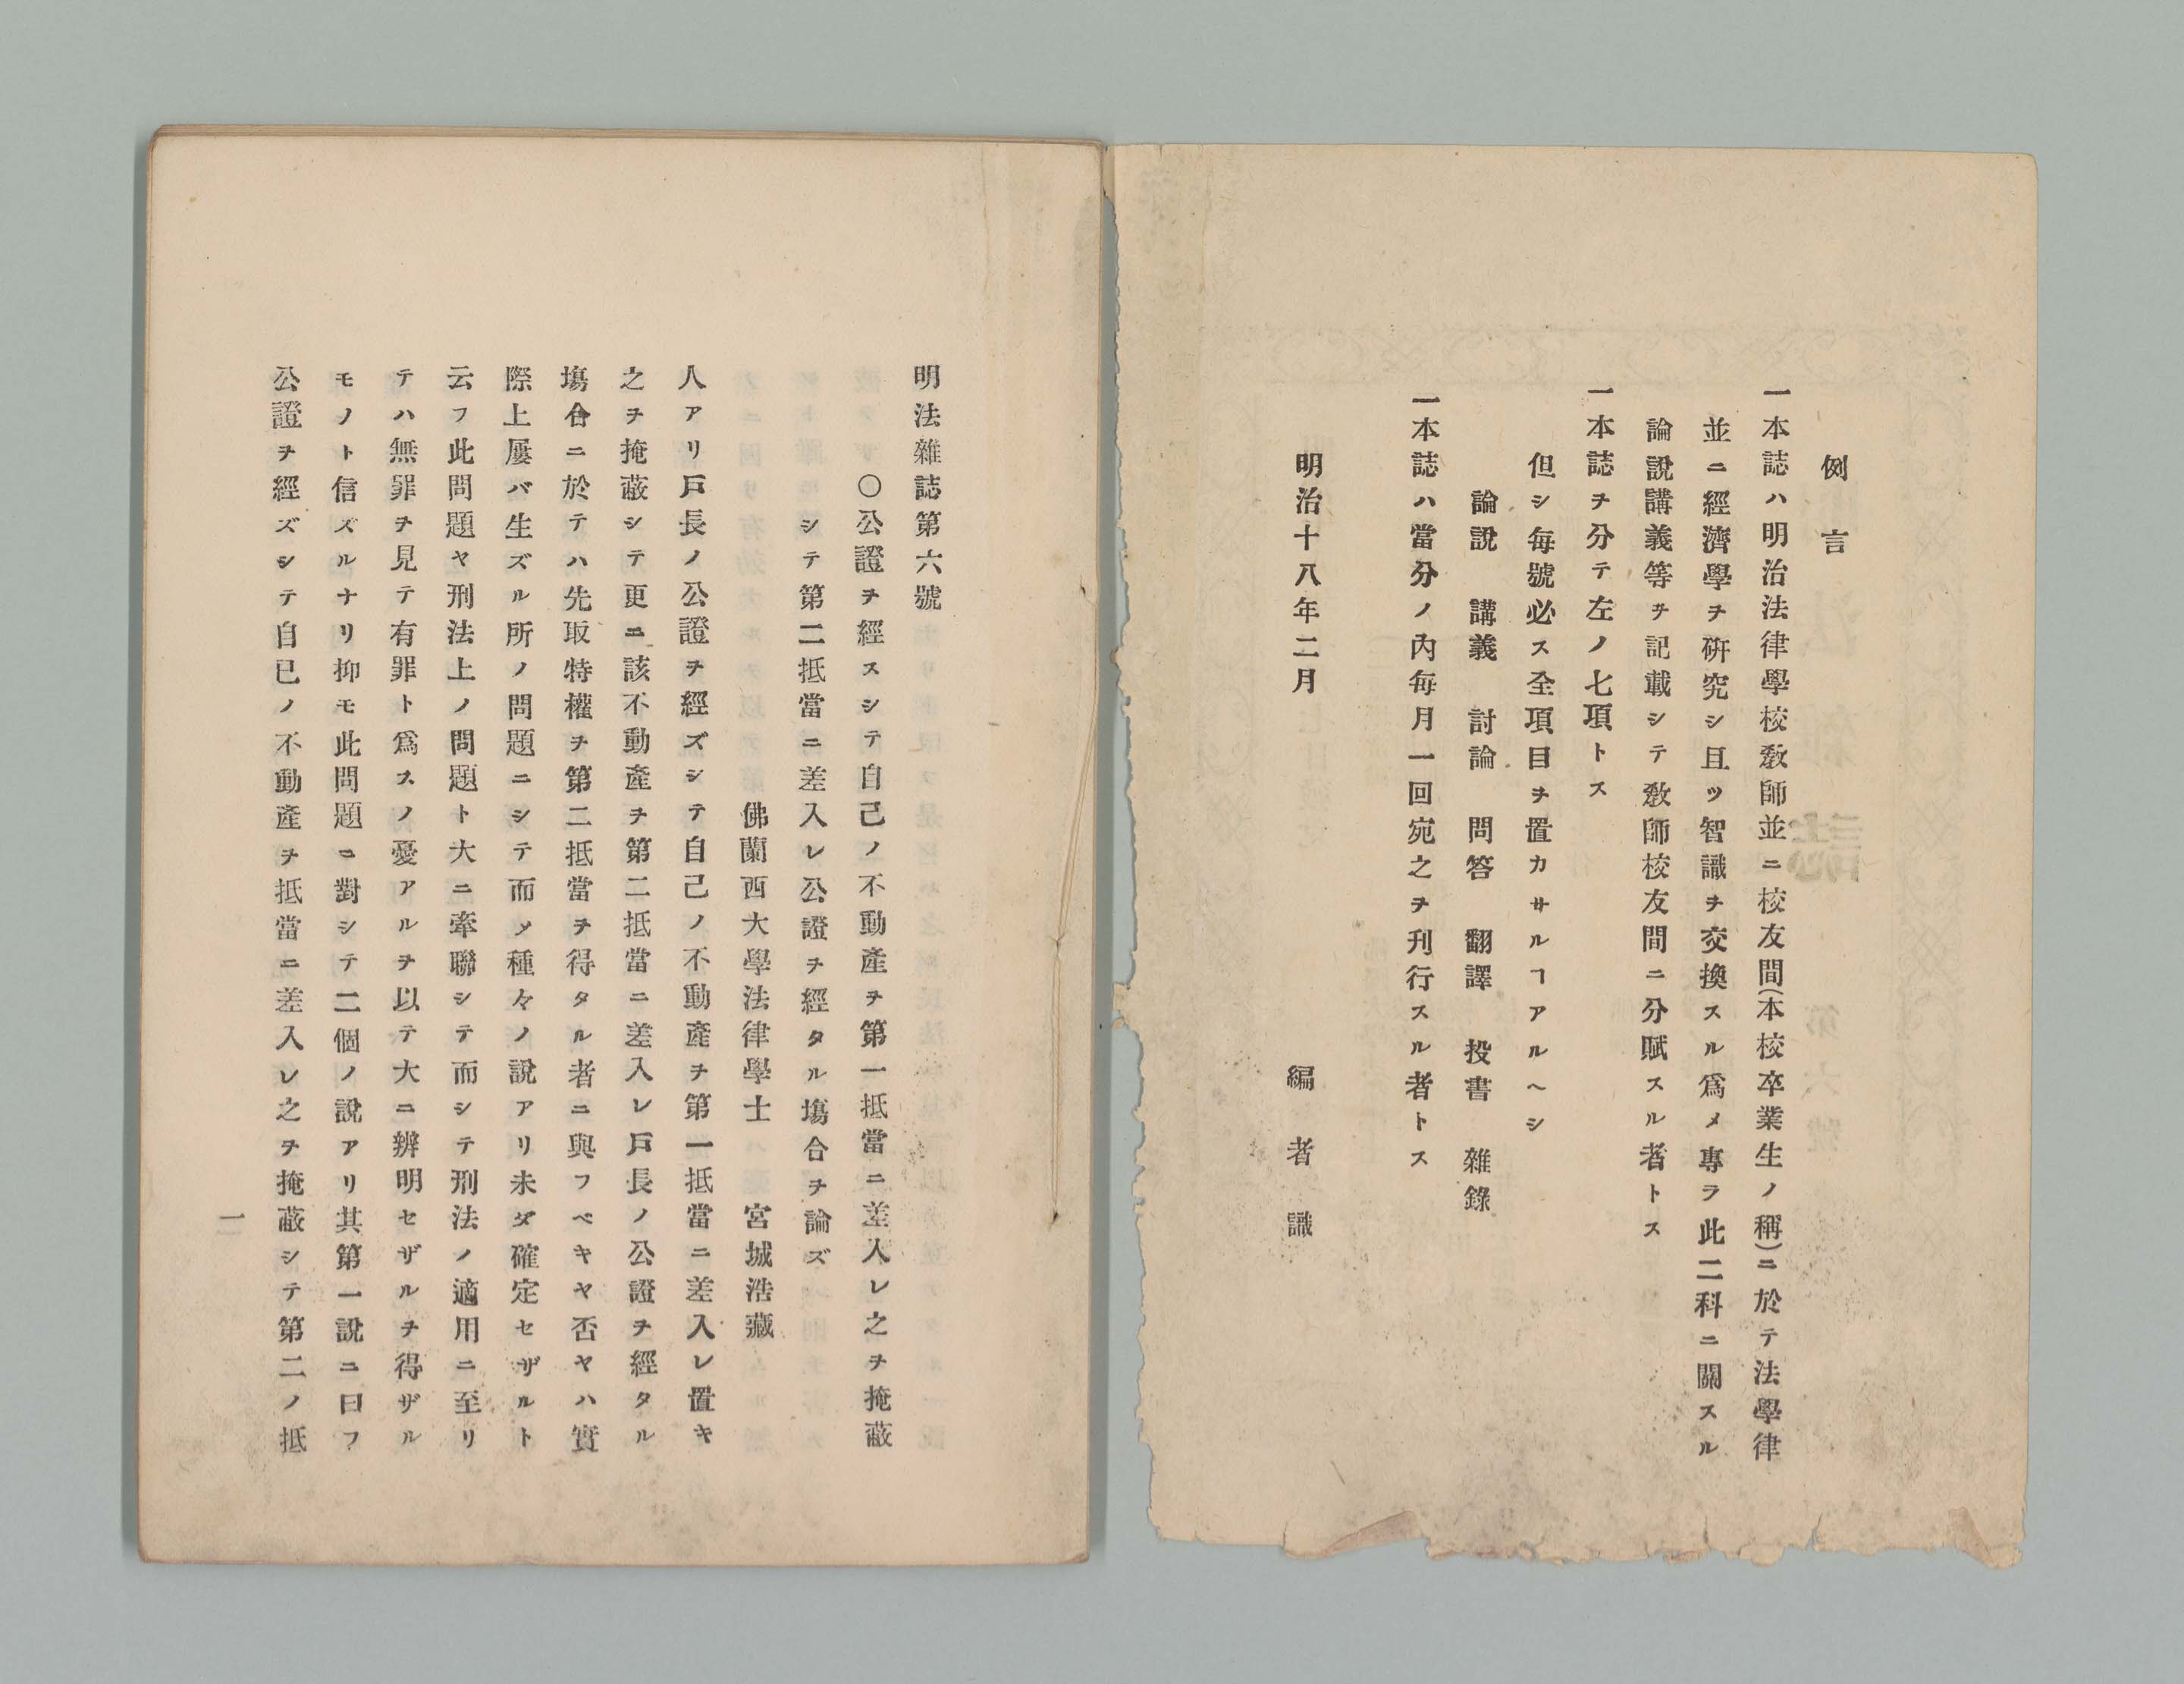 例言
一本誌ハ明治法律學校教師並ニ校友間(本校卒業生ノ稱)ニ於テ法學律
並ニ經濟學ヲ硏究シ且ツ智識ヲ交換スル爲メ專ラ此二科ニ關スル
論說講義等ヲ記載シテ敎師校友間ニ分賦スル者トス
一本誌ヲ分テ左ノ七項トス
但シ每號必ス全項目ヲ置カサルヿアルヘシ
論說 講義 討論 問答 翻譯 投書 雜錄
一本誌ハ當分ノ內每月一回宛之ヲ刊行スル者トス
明治十八年二月
編者識
明法雜誌第六號
〇公證ヲ經スシテ自己ノ不動產ヲ第一抵當ニ差入レ之ヲ掩蔽
シテ第二抵當ニ差入レ公證ヲ經タル塲合ヲ論ズ
佛蘭西大學法律學士 宮城浩藏
人アリ戶長ノ公證ヲ經ズシテ自己ノ不動產ヲ第一抵當ニ差入レ置キ
之ヲ掩蔽シテ更ニ該不動產ヲ第二抵當ニ差入レ戶長ノ公證ヲ經タル
塲合ニ於テハ先取特權ヲ第二抵當ヲ得タル者ニ與フベキヤ否ヤハ實
際上屢バ生ズル所ノ問題ニシテ而メ種々ノ說アリ未ダ確定セザルト
云フ此問題ヤ刑法上ノ問題ト大ニ牽聯シテ而シテ刑法ノ適用ニ至リ
テハ無罪ヲ見テ有罪ト爲スノ憂アルヲ以テ大ニ辨明セザルヲ得ザル
モノト信ズルナリ抑モ此問題ニ對シテ二個ノ說アリ其第一說ニ曰フ
公證ヲ經ズシテ自已ノ不動產ヲ抵當ニ差入レ之ヲ掩蔽シテ第二ノ抵
一